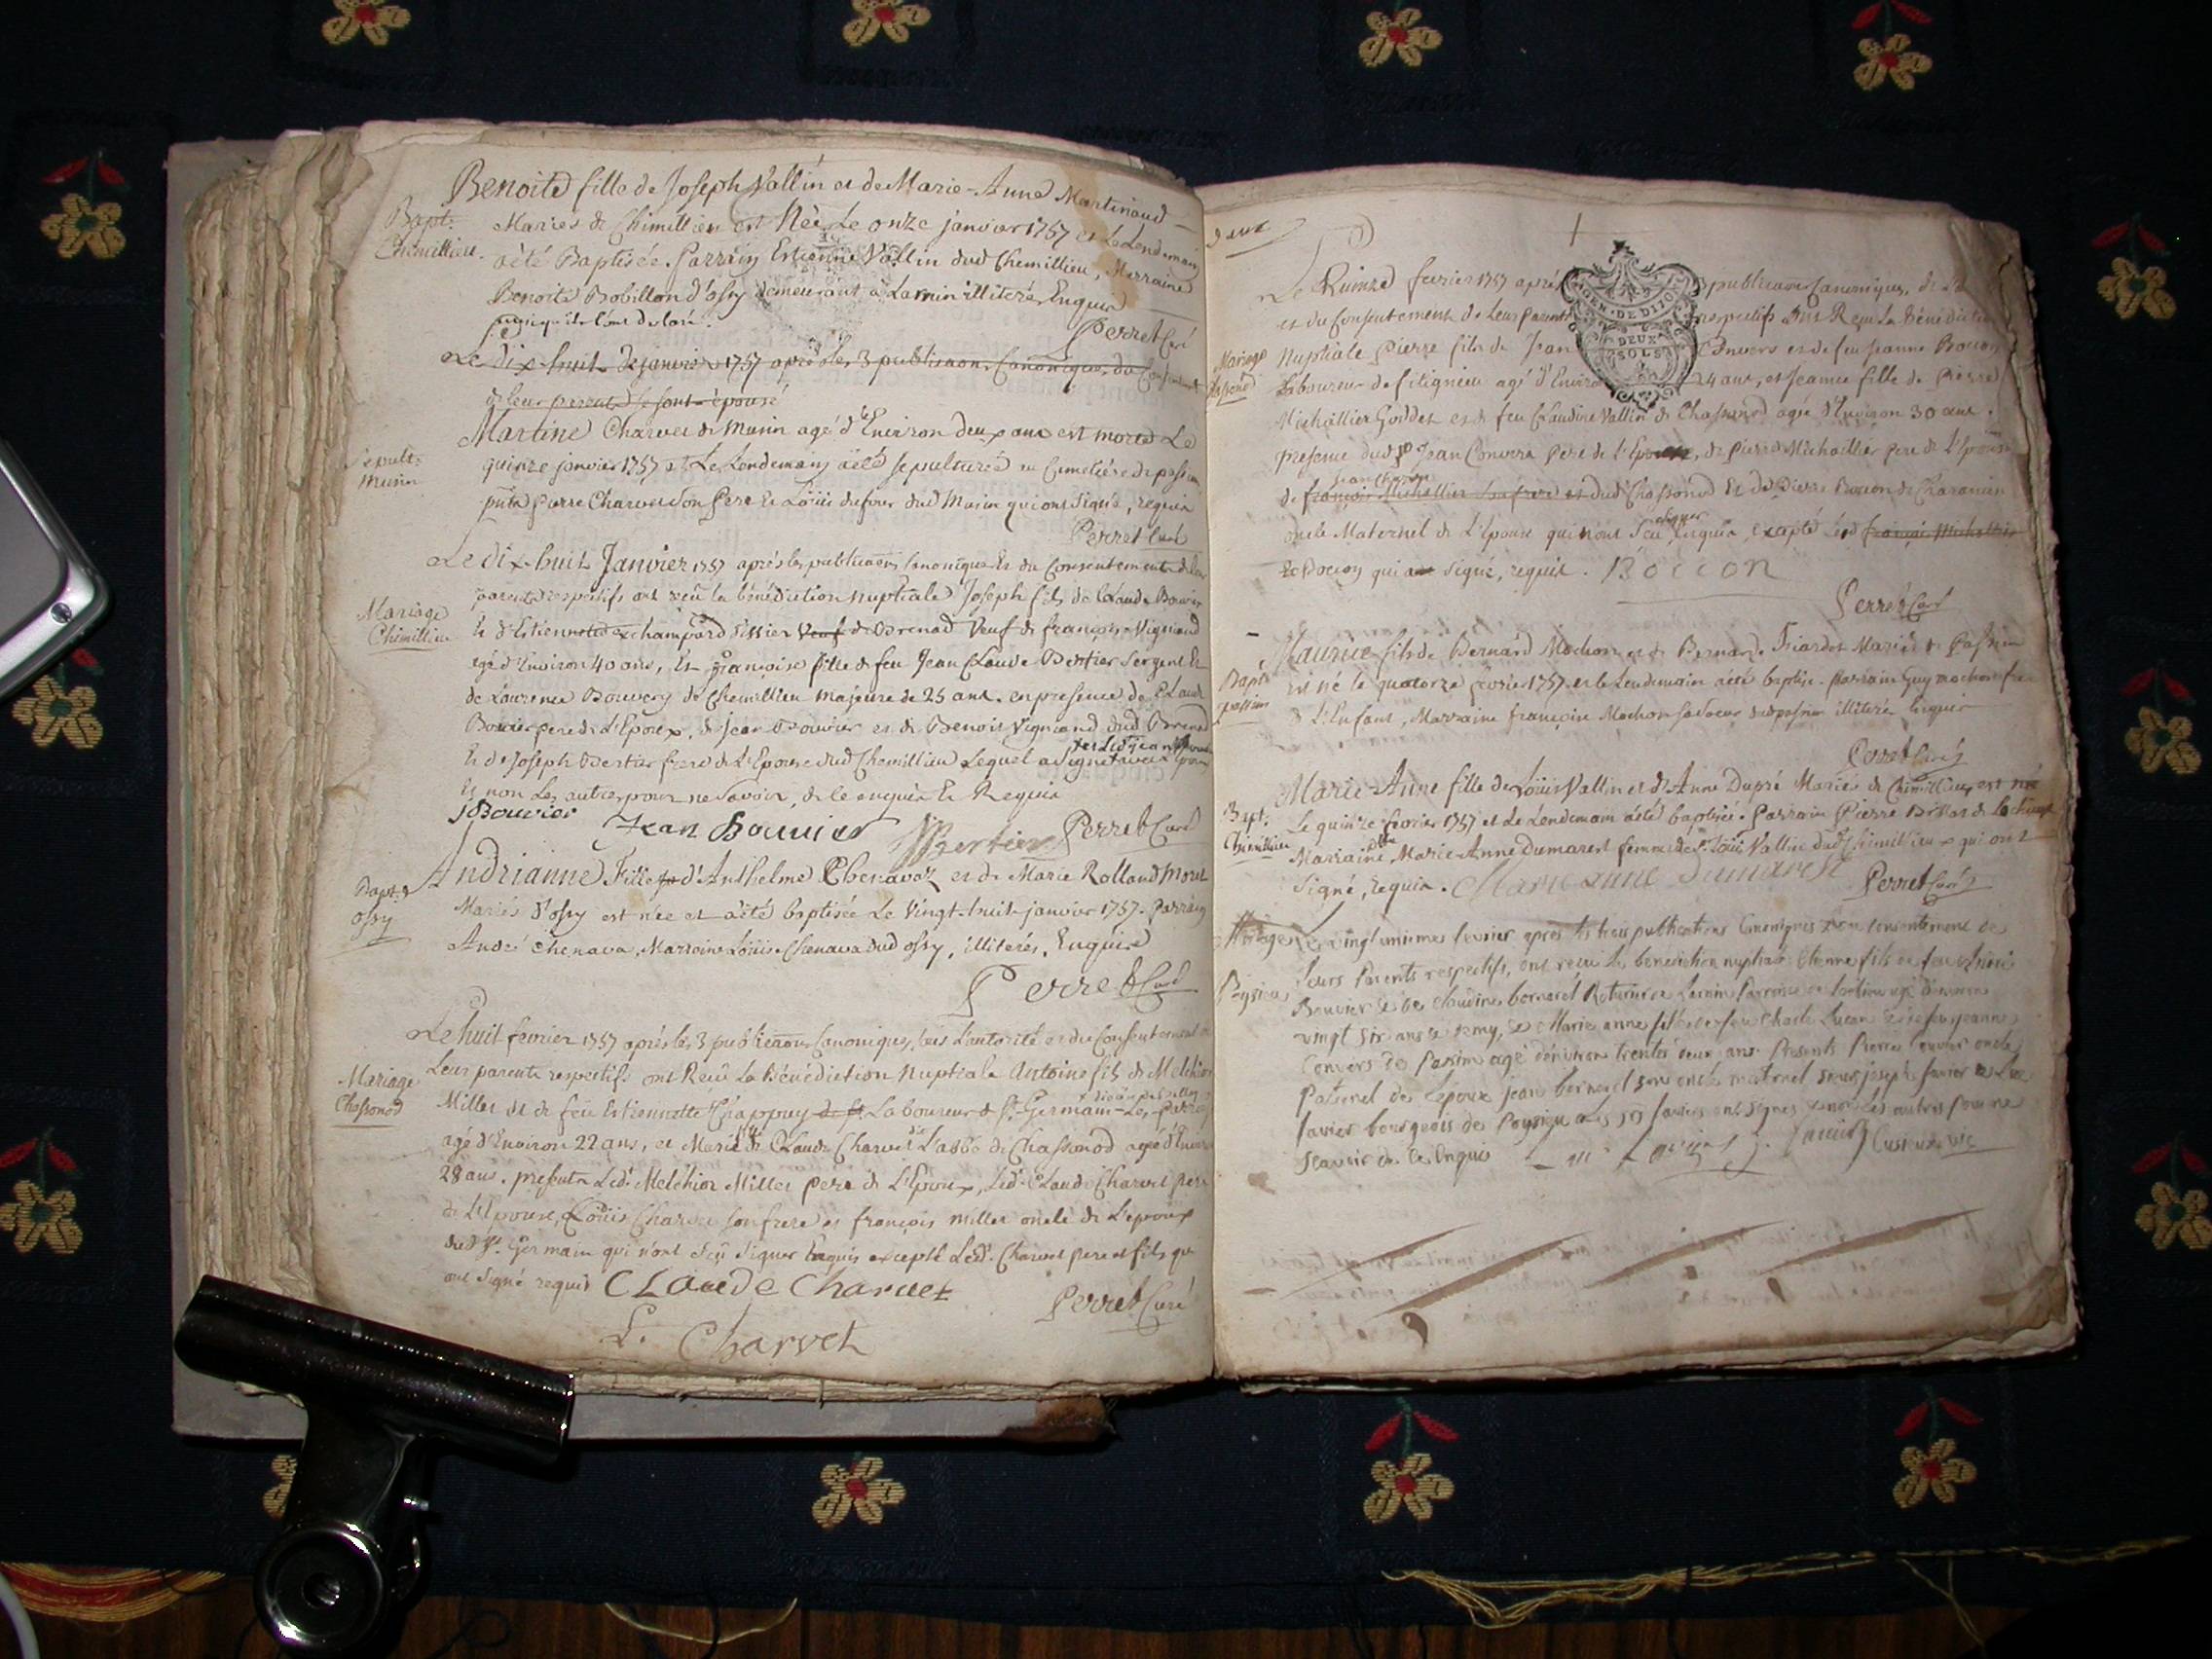 Benoite fille de Joseph Vallin et de Marie-Anne Martinand
Bapt.
Chemillieu.
Mariés de Chimillieu est Née Le onze janvier 1757 et Le Lendemain
aété Baptisée. Parrain Estienne Vallin dud Chemillieu, Marraine
Benoite Bobillon d'ossy demeurant à Lamin illiterés Enquis
Perret Curé
Le dix-huit de janvier 1757 après les 3 publicaons Canoniques, du Consentement
de leur se sont épousé
Martine Charvet de Murin agé d'Environ deux ans est morte Le
Sepult.
Murin
quinze janvier 1757 et Le Lendemain aété sepulturée au Cimetière de passin
pnts pierre Charvet son pere et Loüis dufour dud Murin qui ont signé, requis
Perret Curé
Le dix-huit Janvier 1757 après les publicaons Canoniques et du Consentement de leur
Mariage
Chemillieu
parents respectifs ont reçu la bénédiction nuptiale Joseph fils de Claude Bouvier
et d'Estiennette champard tissier veuf de Brenod Veuf de françoise Vigniand
agé d'Environ 40 ans, Et françoise fille de feu Jean Claude Bertier Sergent Et
de Laurence Bouvery de Chemillieu majeure de 25 ans. en presence de Claude
Bouvier pere de L'Epoux, de Jean Bouvier et de Benoit Vigniand dud Brenod
Et de Joseph Bertier frere de L'Epouse dud Chemillieu Lequel a signé avec
Et non Les autres pour ne savoir, de ce enquis Et Requis
J Bouvier
Jean Bouvier
JBertier
Perret Curé
Andrianne Fille d'Anthelme Chenavaz et de Marie Rolland Moret
Bapt.
ossy
Mariés d'ossy est née et aété baptisée Le Vingt-huit janvier 1757. Parrain
André chenava, Marraine Loüise Chenava dud ossy, illiterés, Enquis
Perret Curé
Le huit fevrier 1757 après les 3 publicaons Canoniques, sous L'autorité et du Consentement de
Mariage
Chassonod
Leurs parents respectifs ont Reçu La Bénédiction Nuptiale Antoine fils de Melchior
Millet et de feüe Estiennette Chappuy Laboureur de St. Germain-Les-
agé d'Environ 22 ans, et Marie fille de Claude Charvet dit L'abbé de Chassonod agée d'Environ
28 ans. presents Led. Melchior Millet pere de L'Epoux, Led. Claude Charvet pere
de L'Epouse, Loüis Charvet son frere et françois Millet oncle de L'epoux
dud St. Germain qui n'ont sçu signer Enquis excepté Lesd. Charvet pere et fils qui
ont signé requis
CLaude Charvet
Perret Curé
L. Charvet
deux
GEN. DE DIJON
DEUX
SOLS
Le Quinze fevrier 1757 après publicaons Canoniques, de
et du Consentement de Leurs parents respectifs ont Reçu La Bénédiction
Mariage
Chassonod
Nuptiale Pierre fils de Jean Convers et de feu Jeanne Bocon
Laboureur de fitignieu agé d'Environ 24 ans, et Jeanne fille de Pierre
Michallier Goddet et de feu Claudine Vallin de Chassonod agée d'Environ 30 ans.
presence dud Jean Convers pere de L'Epoux, de Pierre Michallier pere de L'Epouse
de françois Michallier son frere et dud Chassonod et de Pierre Bocon de Charancin
oncle Maternel de L'Epouse qui n'ont sçu signer Enquis, excepté Led françois Michallier
Bocon qui a signé, requis. BOCCON
Perret Curé
Maurice fils de Bernard Mochon et de Bernarde Triardet Mariés de Passin
Bapt.
passin
est né le quatorze fevrier 1757. et le Lendemain aété baptisé. parrain Guy mochon frere
de L'Enfant, Marraine françoise Mochon sa soeur dud passin illiterés Enquis
Perret Curé
Marie-Anne fille de Loüis Vallin et d'Anne Dupré Mariés de Chimillieu, est née
Bapt.
Chimillieu
Le quinze fevrier 1757 et Le Lendemain aété baptisée. Parrain Pierre Billat de
Marraine dlle Marie-Anne Dumarest femme de Sr. Loüis Vallin dud Chimillieu qui ont
signé, requis. Marie anne Dumarest
Perret Curé
Mariage
Poysieu
Le vingt uniemes fevrier après les trois publications Canoniques du consentement de
leurs Parents respectifs, ont recu la benediction nuptiale Etienne fils de feu
Bouvier et de Claudine bernard Paroisse de agé d'environ
vingt six ans et demy, et Marie anne fille de feu Charle Lucan et de feu jeanne
Convers de Passin agé d'environ trente deux ans. Presents Pierre bouvier oncle
Paternel de l'epoux jean bernard son oncle maternel sieur joseph favier et Luc
favier bourgeois de Poysieu Les srs faviers ont signes et non les autres pour ne
scavoir de ce Enquis